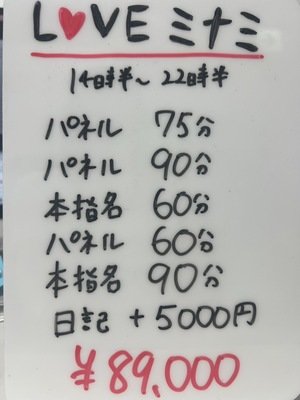 L♥VE ミナミ
14時半～22時半
パネル 75分
パネル 90分
本指名 60分
パネル 60分
本指名 90分
日記 +5000円
¥89,000